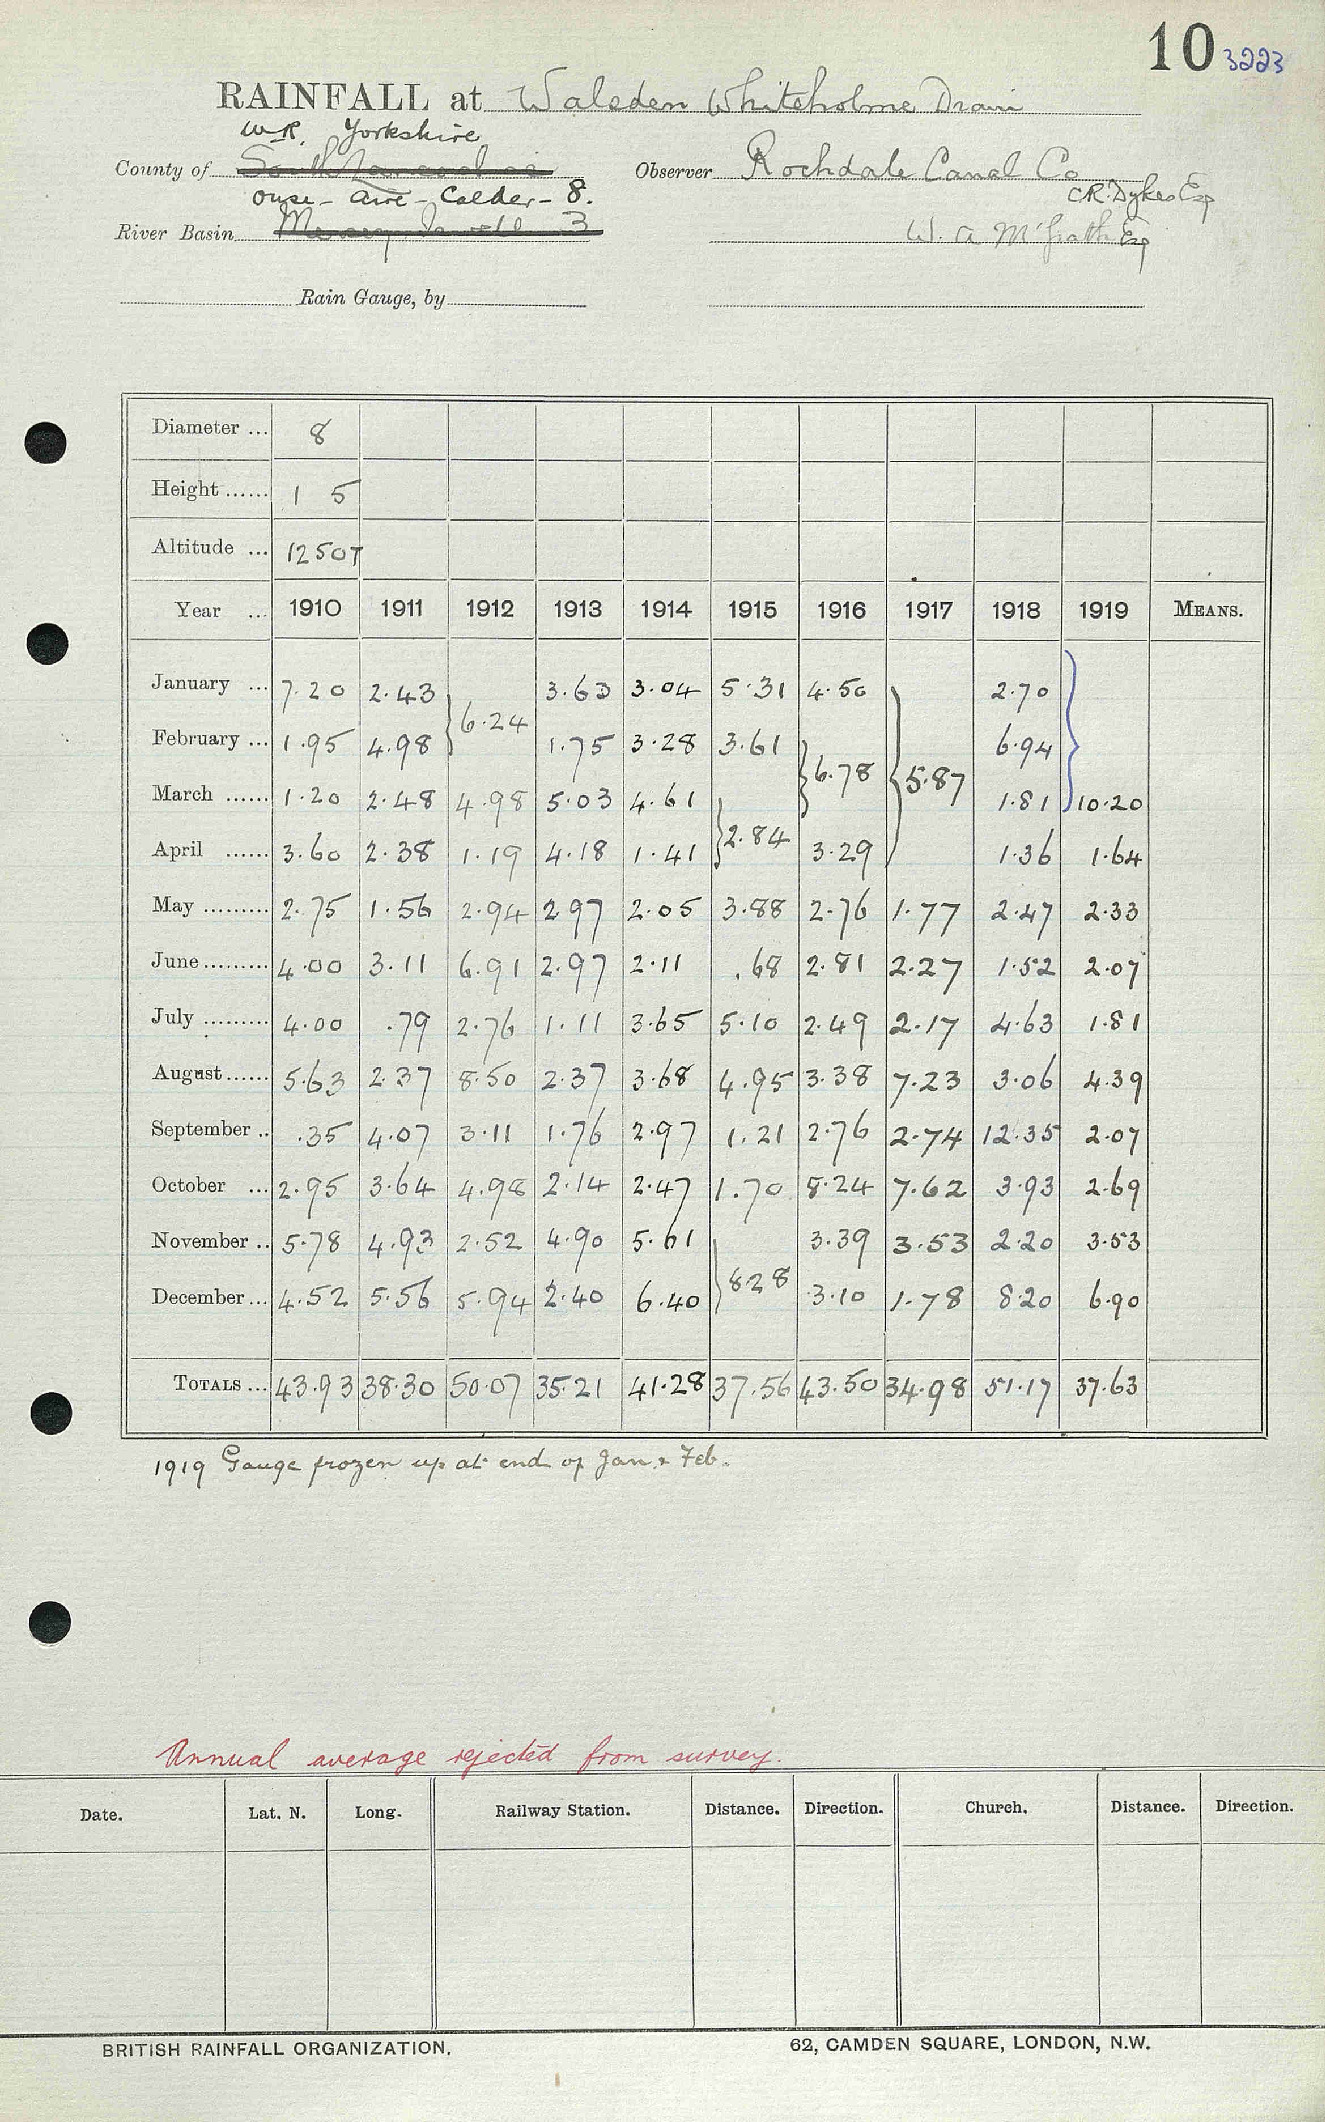 10 3223
RAINFALL at Walsden Whiteholme Drain
W.R. Yorkshire
County of South Lancashire Observer Rochdale Canal Co
C.R. Dykes Esq
Ouse - Aire - Calder - 8.
River Basin Mersey Irwell 3 W. A. McGrath Esq
Rain Gauge, by
Diameter ... 8
Height ...... 1 5
Altitude ... 1250T
Year ... 1910 1911 1912 1913 1914 1915 1916 1917 1918 1919 MEANS.
January ... 7.20 2.43 } 6.24 3.63 3.04 5.31 4.50 } 5.87 2.70 }
February ... 1.95 4.98 1.75 3.28 3.61 } 6.78 6.94
March ...... 1.20 2.48 4.98 5.03 4.61 } 2.84 1.81 10.20
April ...... 3.60 2.38 1.19 4.18 1.41 3.29 1.36 1.64
May ......... 2.75 1.56 2.94 2.97 2.05 3.88 2.76 1.77 2.47 2.33
June ......... 4.00 3.11 6.91 2.97 2.11 .68 2.81 2.27 1.52 2.07
July ......... 4.00 .79 2.76 1.11 3.65 5.10 2.49 2.17 4.63 1.81
August ...... 5.63 2.37 8.50 2.37 3.68 4.95 3.38 7.23 3.06 4.39
September .. .35 4.07 3.11 1.76 2.97 1.21 2.76 2.74 12.35 2.07
October ... 2.95 3.64 4.98 2.14 2.47 1.70 8.24 7.62 3.93 2.69
November .. 5.78 4.93 2.52 4.90 5.61 } 8.28 3.39 3.53 2.20 3.53
December ... 4.52 5.56 5.94 2.40 6.40 3.10 1.78 8.20 6.90
TOTALS ... 43.93 38.30 50.07 35.21 41.28 37.56 43.50 34.98 51.17 37.63
1919 Gauge frozen up at end of Jan & Feb.
Annual average rejected from survey.
Date. Lat. N. Long. Railway Station. Distance. Direction. Church. Distance. Direction.
BRITISH RAINFALL ORGANIZATION. 62, CAMDEN SQUARE, LONDON, N.W.